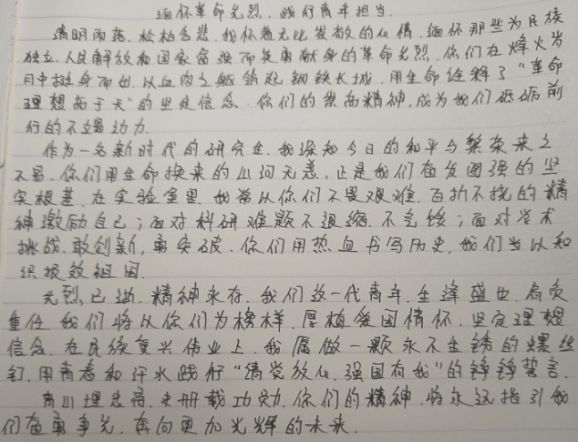 缅怀革命先烈，践行青年担当.
清明雨落，松柏含悲，我怀着无比崇敬的心情，缅怀那些为民族
独立、人民解放和国家富强而英勇献身的革命先烈，你们在烽火岁
月中挺身而出，以血肉之躯铸就钢铁长城，用生命诠释了“革命
理想高于天”的坚定信念，你们的崇高精神，成为我们砥砺前
行的不竭动力.
作为一名新时代的研究生，我深知今日的和平与繁荣来之
不易，你们用生命换来的山河无恙，正是我们奋发图强的坚
实根基，在实验室里，我常以你们不畏艰难、百折不挠的精
神激励自己；面对科研难题不退缩、不气馁；面对学术
挑战，敢创新，勇突破，你们用热血书写历史，我们当以知
识报效祖国.
先烈已逝，精神永存，我们这一代青年，生逢盛世，肩负
重任，我们将以你们为榜样，厚植爱国情怀，坚定理想
信念，在民族复兴伟业上，我愿做一颗永不生锈的螺丝
钉，用青春和汗水践行“请党放心，强国有我”的铮铮誓言.
青山埋忠骨，史册载功勋，你们的精神，将永远指引我
们奋勇争先，奔向更加光辉的未来.